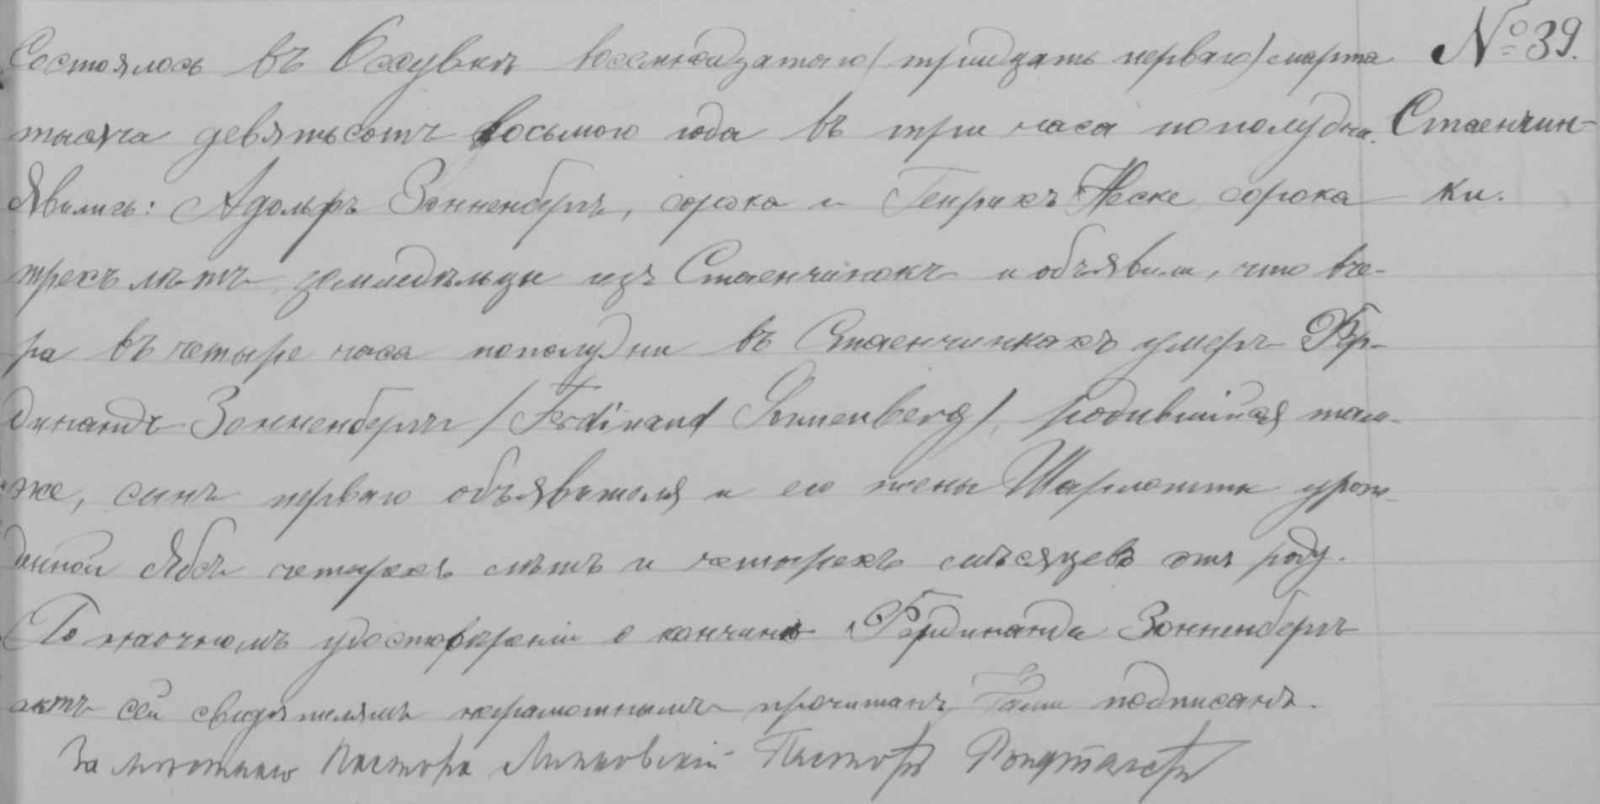 Состоялось въ Оссувкѣ восемнадцатаго (тридцать перваго) марта
№ 39.
тысяча девятьсотъ восьмого года въ три часа пополудни.
Стаенчин-
ки.
Явились: Адольфъ Зонненбергъ, сорока и Генрихъ Жеске сорока
трехъ лѣтъ земледѣльцы изъ Стаенчинокъ и объявили, что вче-
ра въ четыре часа пополудни въ Стаенчинкахъ умеръ Фер-
динандъ Зонненбергъ (Ferdinand Sonnenberg), родившійся там-
же, сынъ перваго объявителя и его жены Шарлотты урож-
денной Ябсъ четырехъ лѣтъ и четырехъ мѣсяцевъ отъ роду.
По наочномъ удостовѣреніи о кончинѣ Фердинанда Зонненбергъ
актъ сей свидѣтелямъ неграмотнымъ прочитанъ, Нами подписанъ.
За мѣстнаго Пастора Липновскій Пасторъ